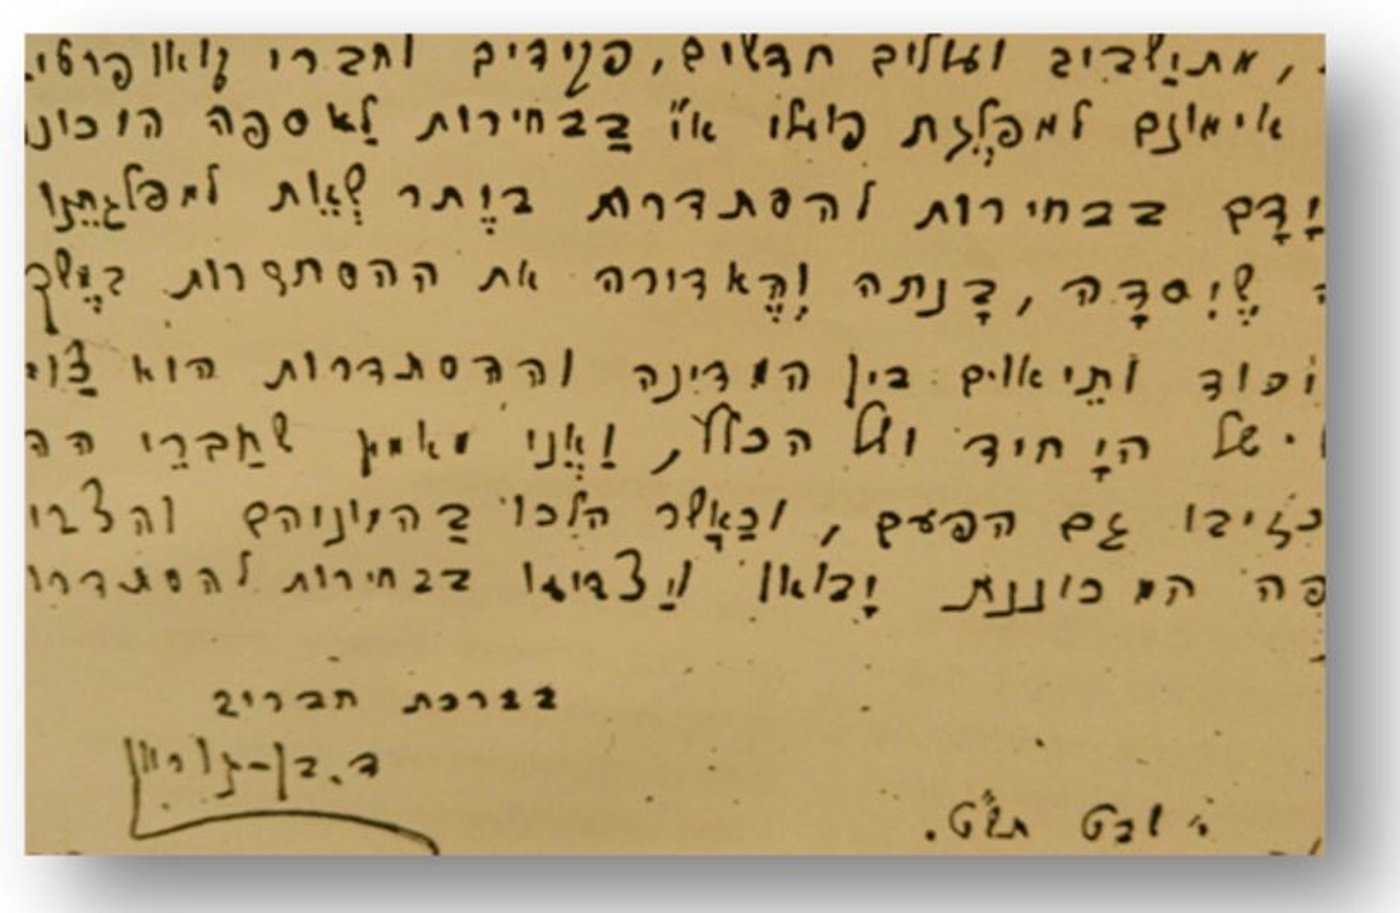 , מתישבים ועולים חדשים, פקידים וחברי קואופרטי
אימונם למפלגת פועלי א"י בבחירות לאספה המכוננ
בבחירות להסתדרות ביֶתר שְׂאֵת למפלגתֵנו
שֶיִסדָה, בָנתה וְהֶאדירה את ההסתדרות במֶשך
ותֵיאום בין המדינה וההסתדרות הוא צַו
של היָחיד ושל הכלל, וַאֲני מאמין שחַברֵי הה
כזיבו גם הפעם, וכַאֲשר הלכו בַהמוניהם והצבי
פה המכוננת יָבואו ויַצביעו בבחירות להסתדרו
בברכת חברים
ד. בן-גוריון
י' שבט תש"ט.